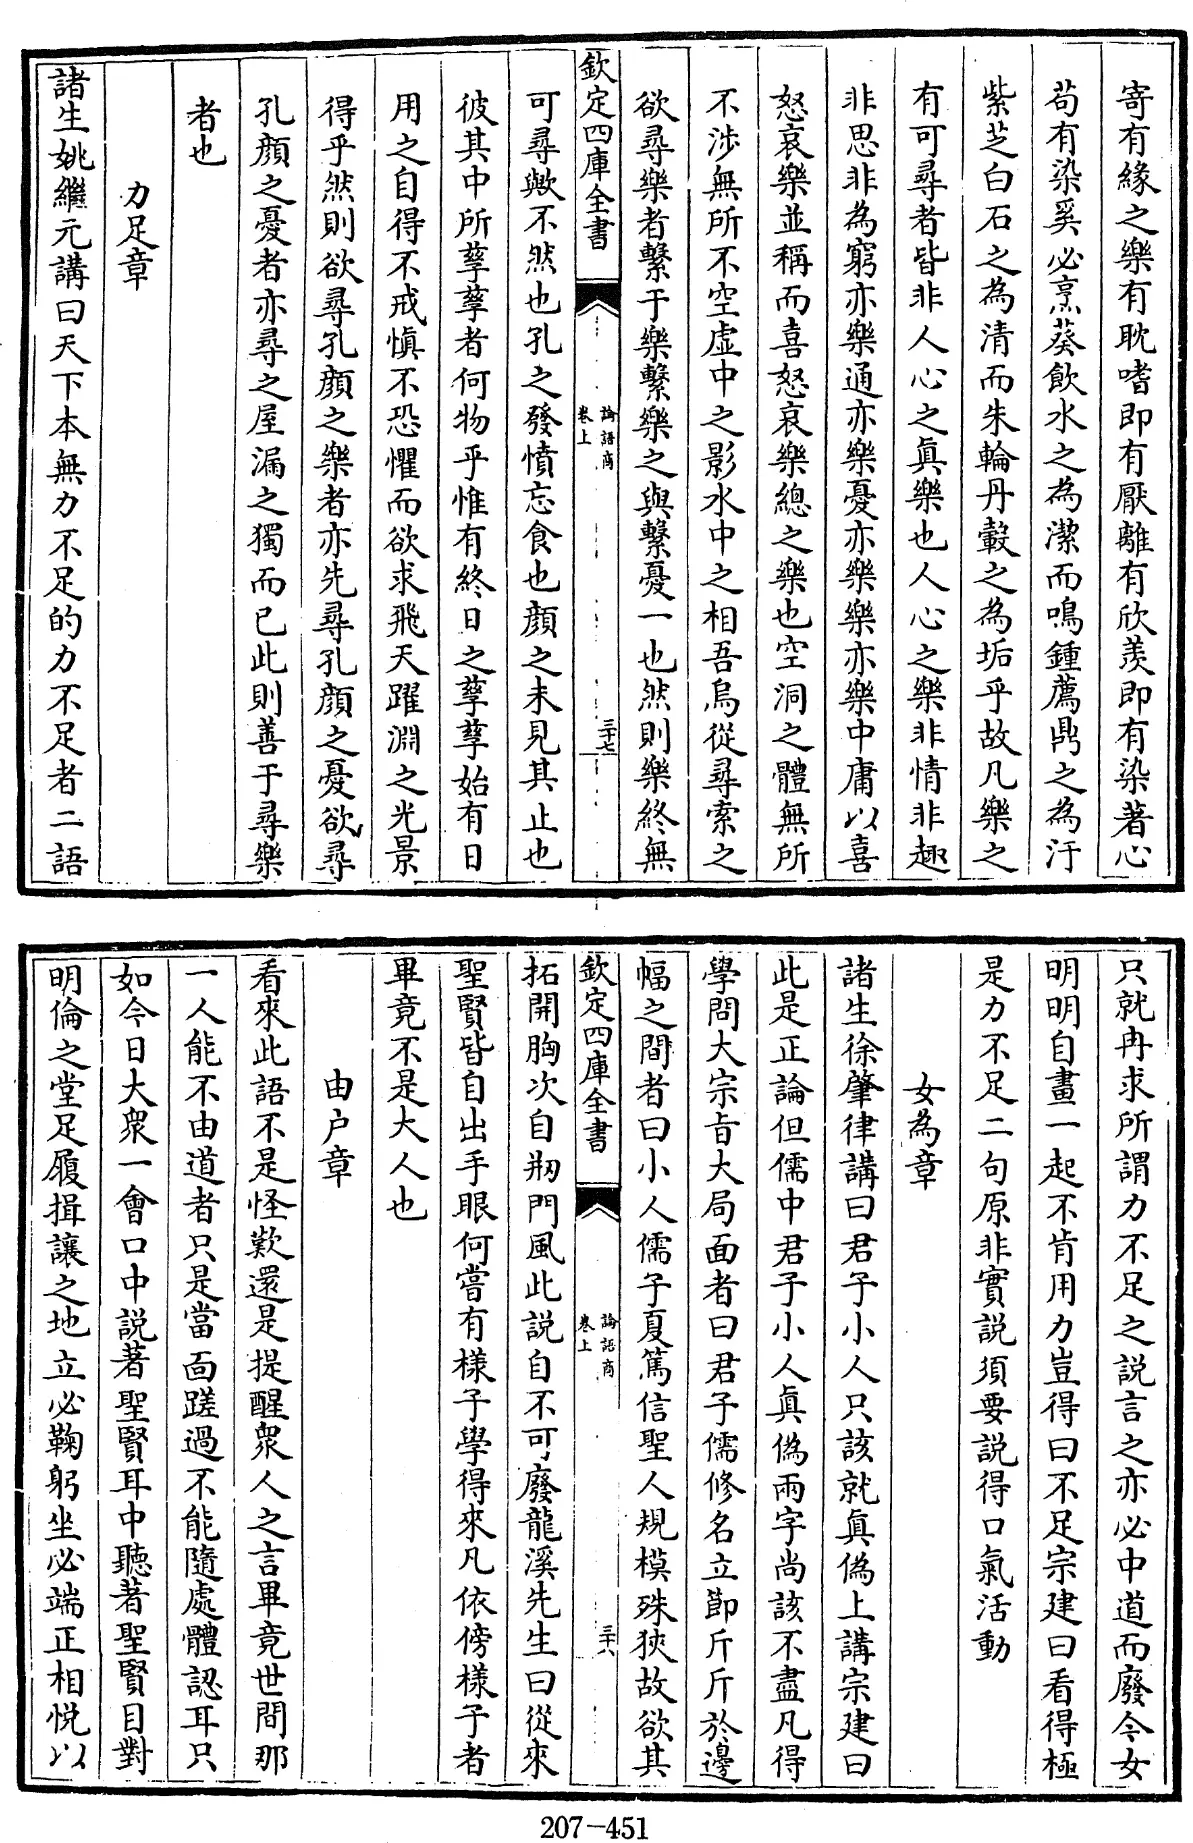 寄有緣之樂有耽嗜即有厭離有欣羨即有染著心
苟有染奚必烹葵飲水之為潔而鳴鍾薦鼎之為汙
紫芝白石之為清而朱輪丹轂之為垢乎故凡樂之
有可尋者皆非人心之真樂也人心之樂非情非趣
非思非為窮亦樂通亦樂憂亦樂樂亦樂中庸以喜
怒哀樂並稱而喜怒哀樂總之樂也空洞之體無所
不涉無所不空虛中之影水中之相吾烏從尋索之
欲尋樂者繫于樂繫樂之與繫憂一也然則樂終無
欽定四庫全書
論語商
卷上
三十七
可尋歟不然也孔之發憤忘食也顏之未見其止也
彼其中所孳孳者何物乎惟有終日之孳孳始有日
用之自得不戒慎不恐懼而欲求飛天躍淵之光景
得乎然則欲尋孔顏之樂者亦先尋孔顏之憂欲尋
孔顏之憂者亦尋之屋漏之獨而已此則善于尋樂
者也
力足章
諸生姚繼元講曰天下本無力不足的力不足者二語
只就冉求所謂力不足之説言之亦必中道而廢今女
明明自畫一起不肯用力豈得曰不足宗建曰看得極
是力不足二句原非實説須要説得口氣活動
女為章
諸生徐肇律講曰君子小人只該就真偽上講宗建曰
此是正論但儒中君子小人真偽兩字尚該不盡凡得
學問大宗旨大局面者曰君子儒修名立節斤斤於邊
幅之間者曰小人儒子夏篤信聖人規模殊狹故欲其
欽定四庫全書
論語商
卷上
三十八
拓開胸次自剏門風此説自不可廢龍溪先生曰從來
聖賢皆自出手眼何嘗有樣子學得來凡依傍樣子者
畢竟不是大人也
由户章
看來此語不是怪歎還是提醒衆人之言畢竟世間那
一人能不由道者只是當面蹉過不能隨處體認耳只
如今日大衆一會口中説著聖賢耳中聽著聖賢目對
明倫之堂足履揖讓之地立必鞠躬坐必端正相悦以
207-451